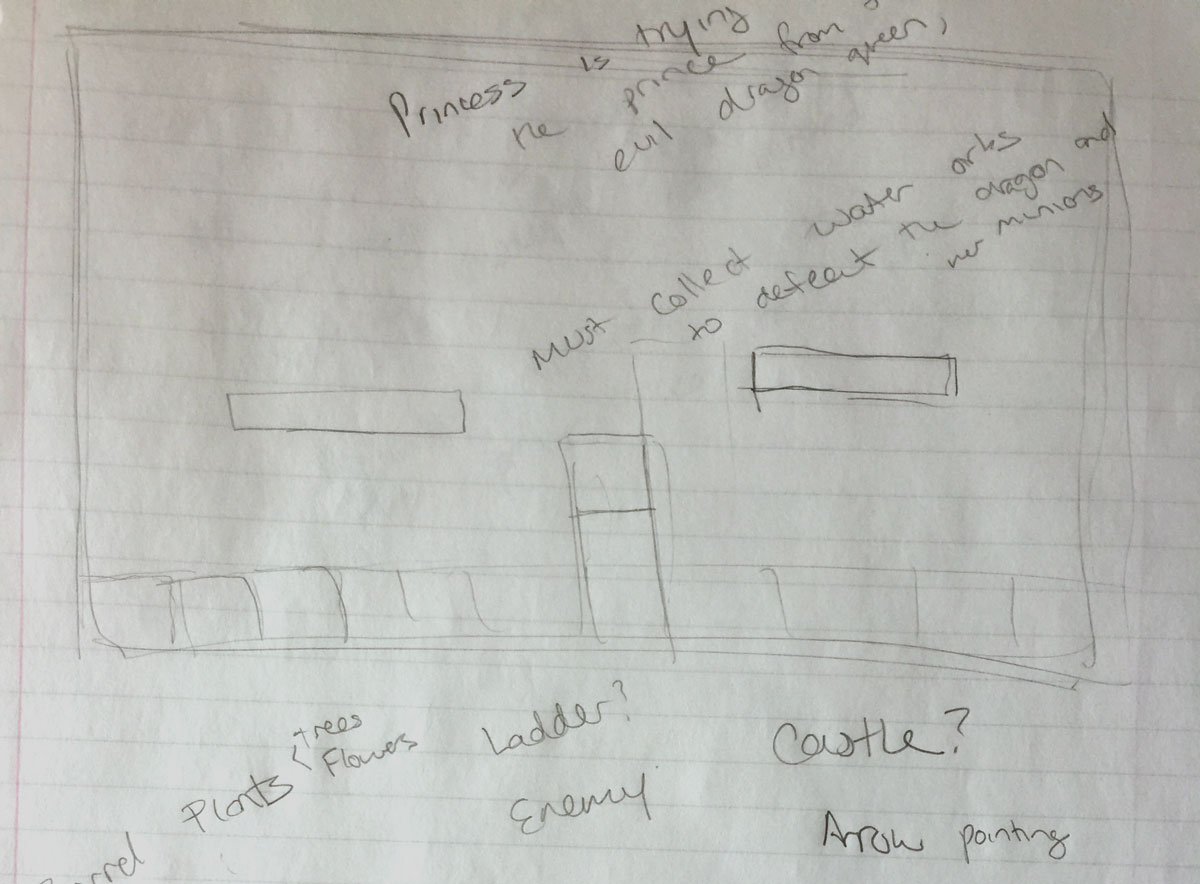 Princess is trying
the prince from
evil dragon queen,
Must collect water orbs
to defeat the dragon and
her minions
Plants < trees
Flowers
Ladder?
Castle?
Enemy
Arrow pointing